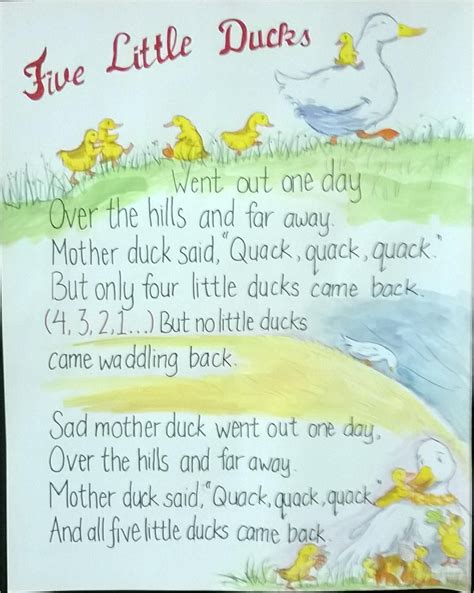 Five Little Ducks
Went out one day
Over the hills and far away.
Mother duck said, "Quack, quack, quack."
But only four little ducks came back.
(4, 3, 2, 1...) But no little ducks
came waddling back.
Sad mother duck went out one day,
Over the hills and far away.
Mother duck said, "Quack, quack, quack."
And all five little ducks came back.